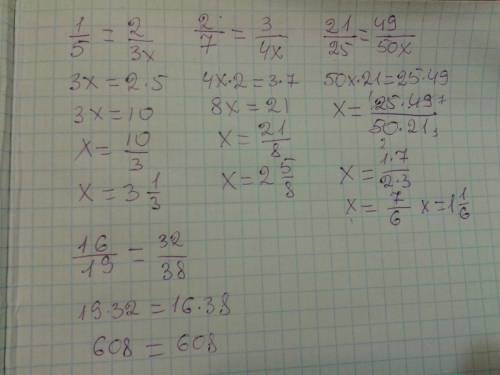 1/5 = 2/3x
3x = 2·5
3x = 10
x = 10/3
x = 3 1/3
2/7 = 3/4x
4x·2 = 3·7
8x = 21
x = 21/8
x = 2 5/8
21/25 = 49/50x
50x·21 = 25·49
x = 25·49/50·21
x = 1·7/2·3
x = 7/6 x = 1 1/6
16/19 = 32/38
19·32 = 16·38
608 = 608